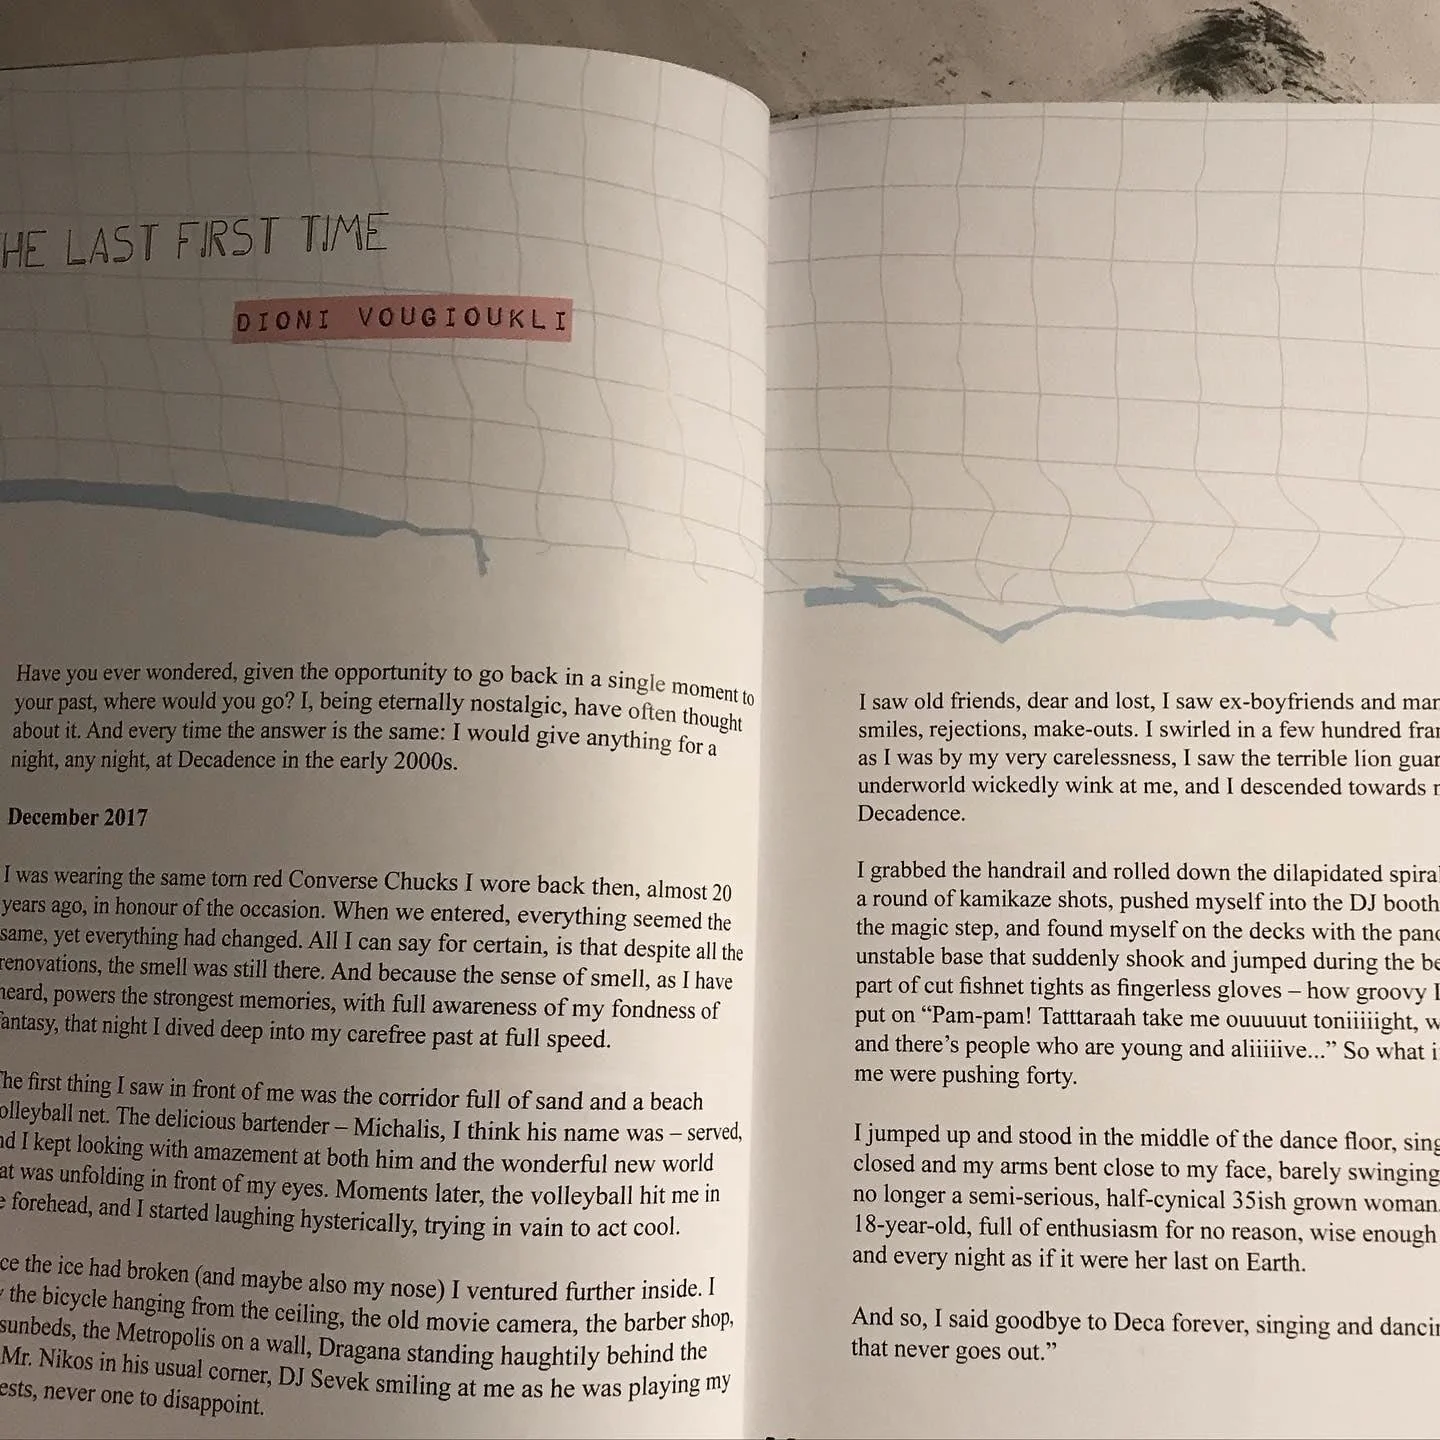 HE LAST FIRST TIME
DIONI VOUGIOUKLI
Have you ever wondered, given the opportunity to go back in a single moment to
your past, where would you go? I, being eternally nostalgic, have often thought
about it. And every time the answer is the same: I would give anything for a
night, any night, at Decadence in the early 2000s.
December 2017
I was wearing the same torn red Converse Chucks I wore back then, almost 20
years ago, in honour of the occasion. When we entered, everything seemed the
same, yet everything had changed. All I can say for certain, is that despite all the
renovations, the smell was still there. And because the sense of smell, as I have
heard, powers the strongest memories, with full awareness of my fondness of
fantasy, that night I dived deep into my carefree past at full speed.
The first thing I saw in front of me was the corridor full of sand and a beach
olleyball net. The delicious bartender – Michalis, I think his name was – served,
nd I kept looking with amazement at both him and the wonderful new world
at was unfolding in front of my eyes. Moments later, the volleyball hit me in
e forehead, and I started laughing hysterically, trying in vain to act cool.
ce the ice had broken (and maybe also my nose) I ventured further inside. I
the bicycle hanging from the ceiling, the old movie camera, the barber shop,
sunbeds, the Metropolis on a wall, Dragana standing haughtily behind the
Mr. Nikos in his usual corner, DJ Sevek smiling at me as he was playing my
ests, never one to disappoint.
I saw old friends, dear and lost, I saw ex-boyfriends and mar
smiles, rejections, make-outs. I swirled in a few hundred fra
as I was by my very carelessness, I saw the terrible lion guar
underworld wickedly wink at me, and I descended towards
Decadence.
I grabbed the handrail and rolled down the dilapidated spiral
a round of kamikaze shots, pushed myself into the DJ booth
the magic step, and found myself on the decks with the pano
unstable base that suddenly shook and jumped during the be
part of cut fishnet tights as fingerless gloves – how groovy I
put on “Pam-pam! Tatttaraah take me ouuuuut toniiiiight, w
and there’s people who are young and aliiiiive...” So what i
me were pushing forty.
I jumped up and stood in the middle of the dance floor, sing
closed and my arms bent close to my face, barely swinging
no longer a semi-serious, half-cynical 35ish grown woman.
18-year-old, full of enthusiasm for no reason, wise enough
and every night as if it were her last on Earth.
And so, I said goodbye to Deca forever, singing and dancin
that never goes out.”